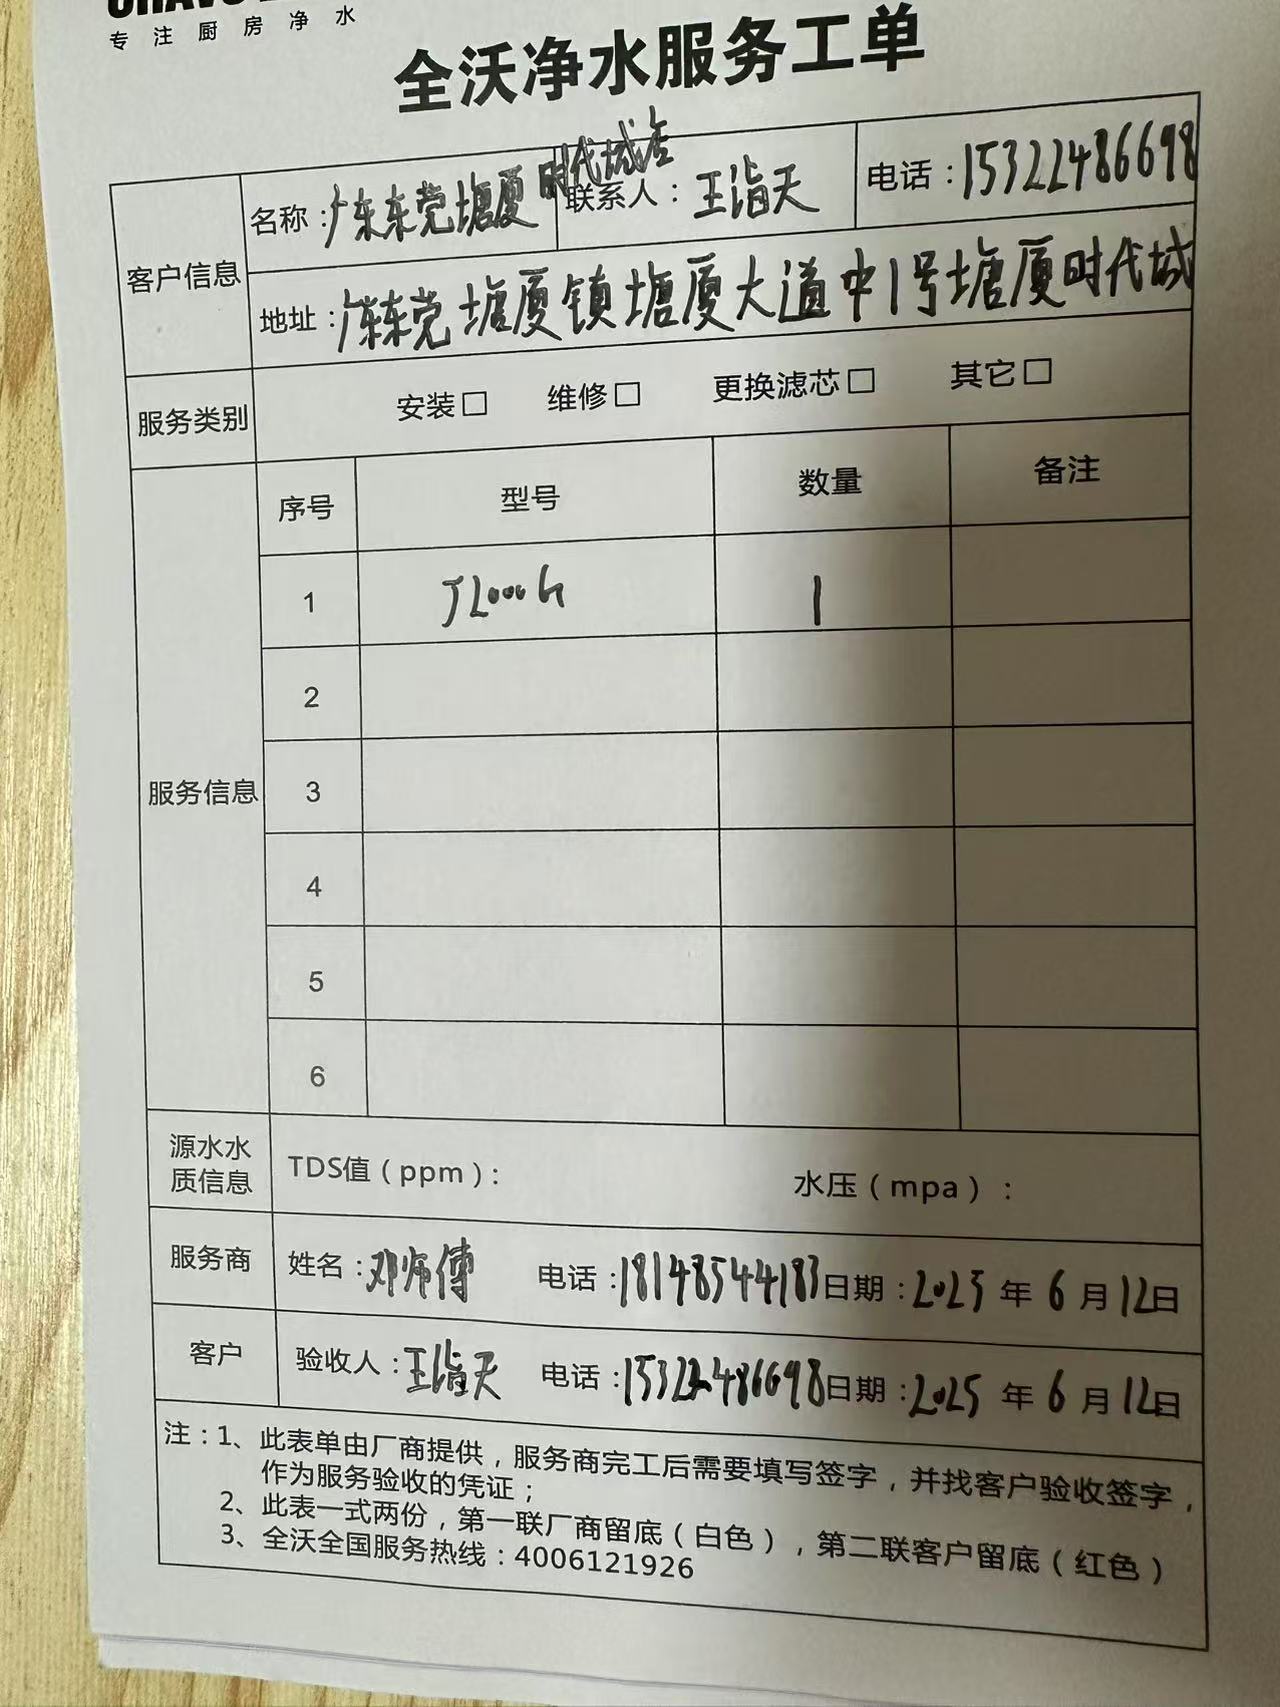 专注厨房净水
全沃净水服务工单
客户信息
名称：广东东莞塘厦时代城店
联系人：王诣天
电话：15322486698
地址：广东东莞塘厦镇塘厦大道中1号塘厦时代城
服务类别
安装□ 维修□ 更换滤芯□ 其它□
服务信息
序号 型号 数量 备注
1 J2000G 1
2
3
4
5
6
源水水质信息
TDS值（ppm）： 水压（mpa）：
服务商
姓名：邓师傅 电话：18148544183 日期：2025年6月12日
客户
验收人：王诣天 电话：15322486698 日期：2025年6月12日
注：1、此表单由厂商提供，服务商完工后需要填写签字，并找客户验收签字，
作为服务验收的凭证；
2、此表一式两份，第一联厂商留底（白色），第二联客户留底（红色）
3、全沃全国服务热线：4006121926